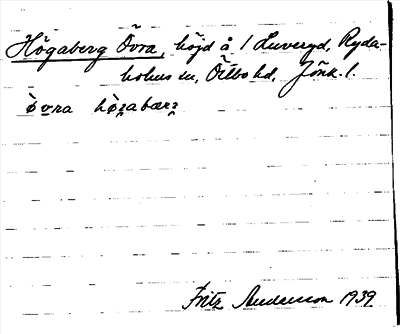 Högaberg Övra, höjd å 1 Huveryd, Ryda-
holms sn, Östbo hd, Jönk. l.
òvra hø̀gabærj
Fritz Andersson 1939